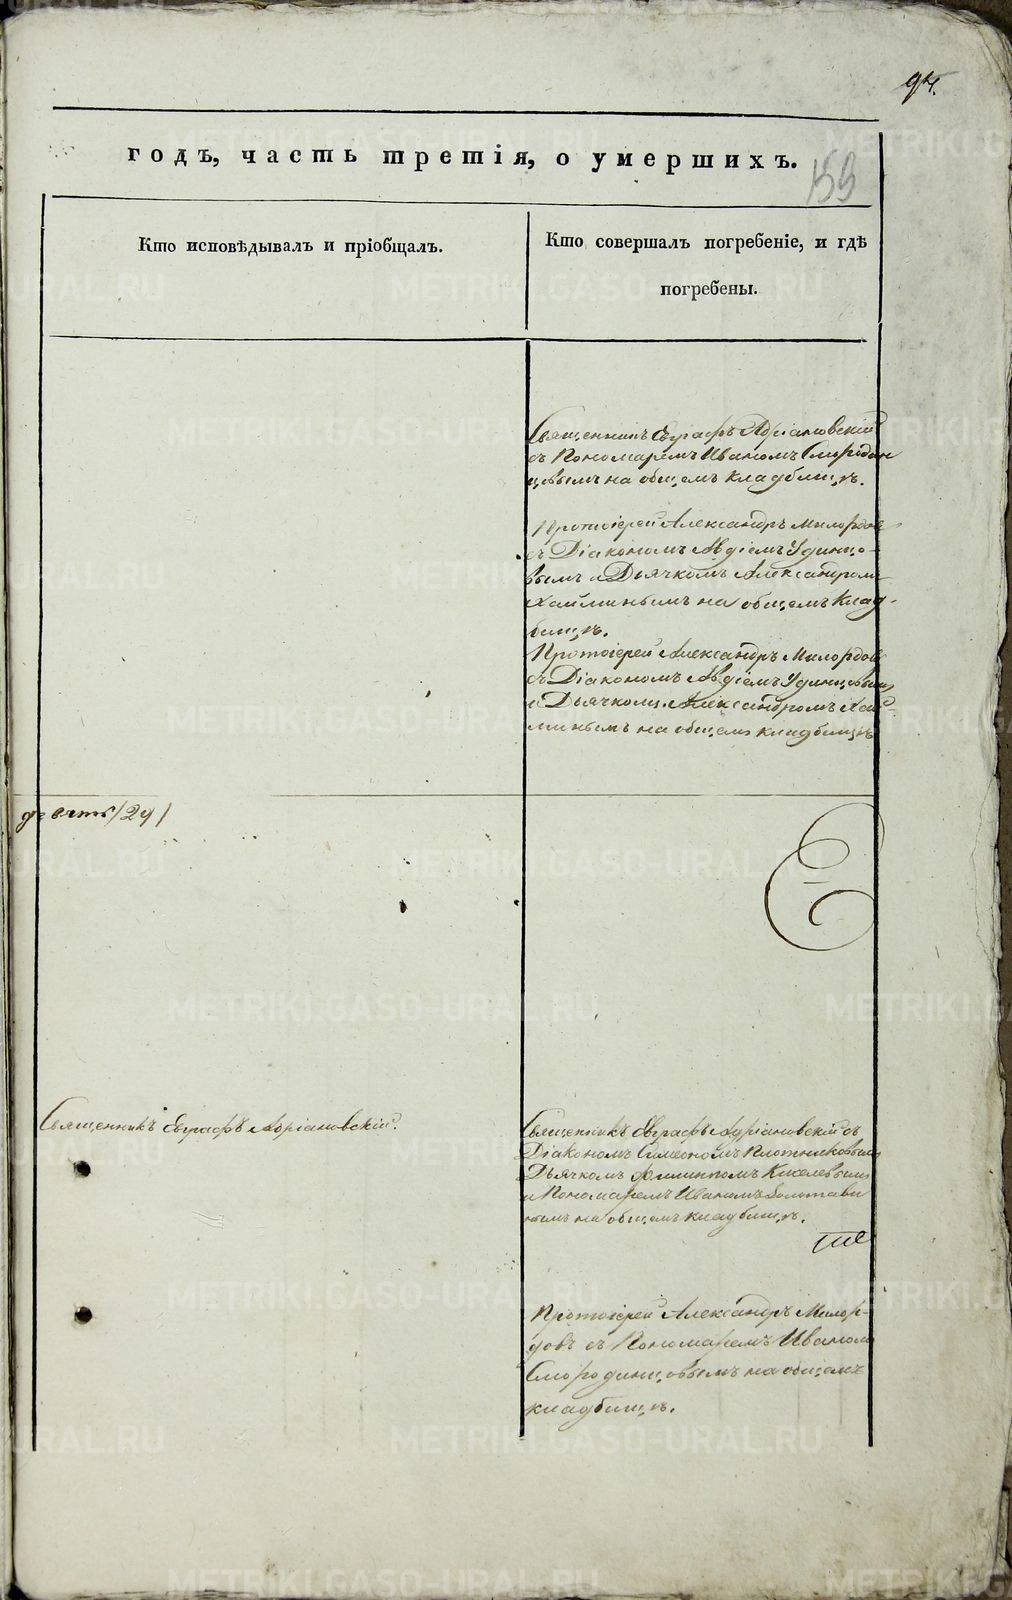 94.
годъ, часть третія, о умершихъ.
153
Кто исповѣдывалъ и пріобщалъ.
Кто совершалъ погребеніе, и гдѣ
погребены.
Священникъ Евграфъ Адріановскій
съ Пономаремъ Иваномъ Смородин
цовымъ на общемъ кладбищѣ.
Протоіерей Александръ Милордов
съ Діакономъ Авдіемъ Удинцо-
вымъ и Дьячкомъ Александромъ
Хайминымъ на общемъ клад-
бищѣ.
Протоіерей Александръ Милордовъ
съ Діакономъ Авдіемъ Удинцовымъ
и Дьячкомъ Александромъ Хай-
минымъ на общемъ кладбищѣ
девять /29/
Священникъ Евграфъ Адріановскій.
Священникъ Евграфъ Адріановскій съ
Діакономъ Симеономъ Плотниковымъ
Дьячкомъ Филиппомъ Киселевымъ
и Пономаремъ Иваномъ
нымъ на общемъ кладбищѣ.
Протоіерей Александръ Милор-
довъ съ Пономаремъ Иваномъ
Смородинцовымъ на общемъ
кладбищѣ.
METRIKI.GASO-URAL.RU